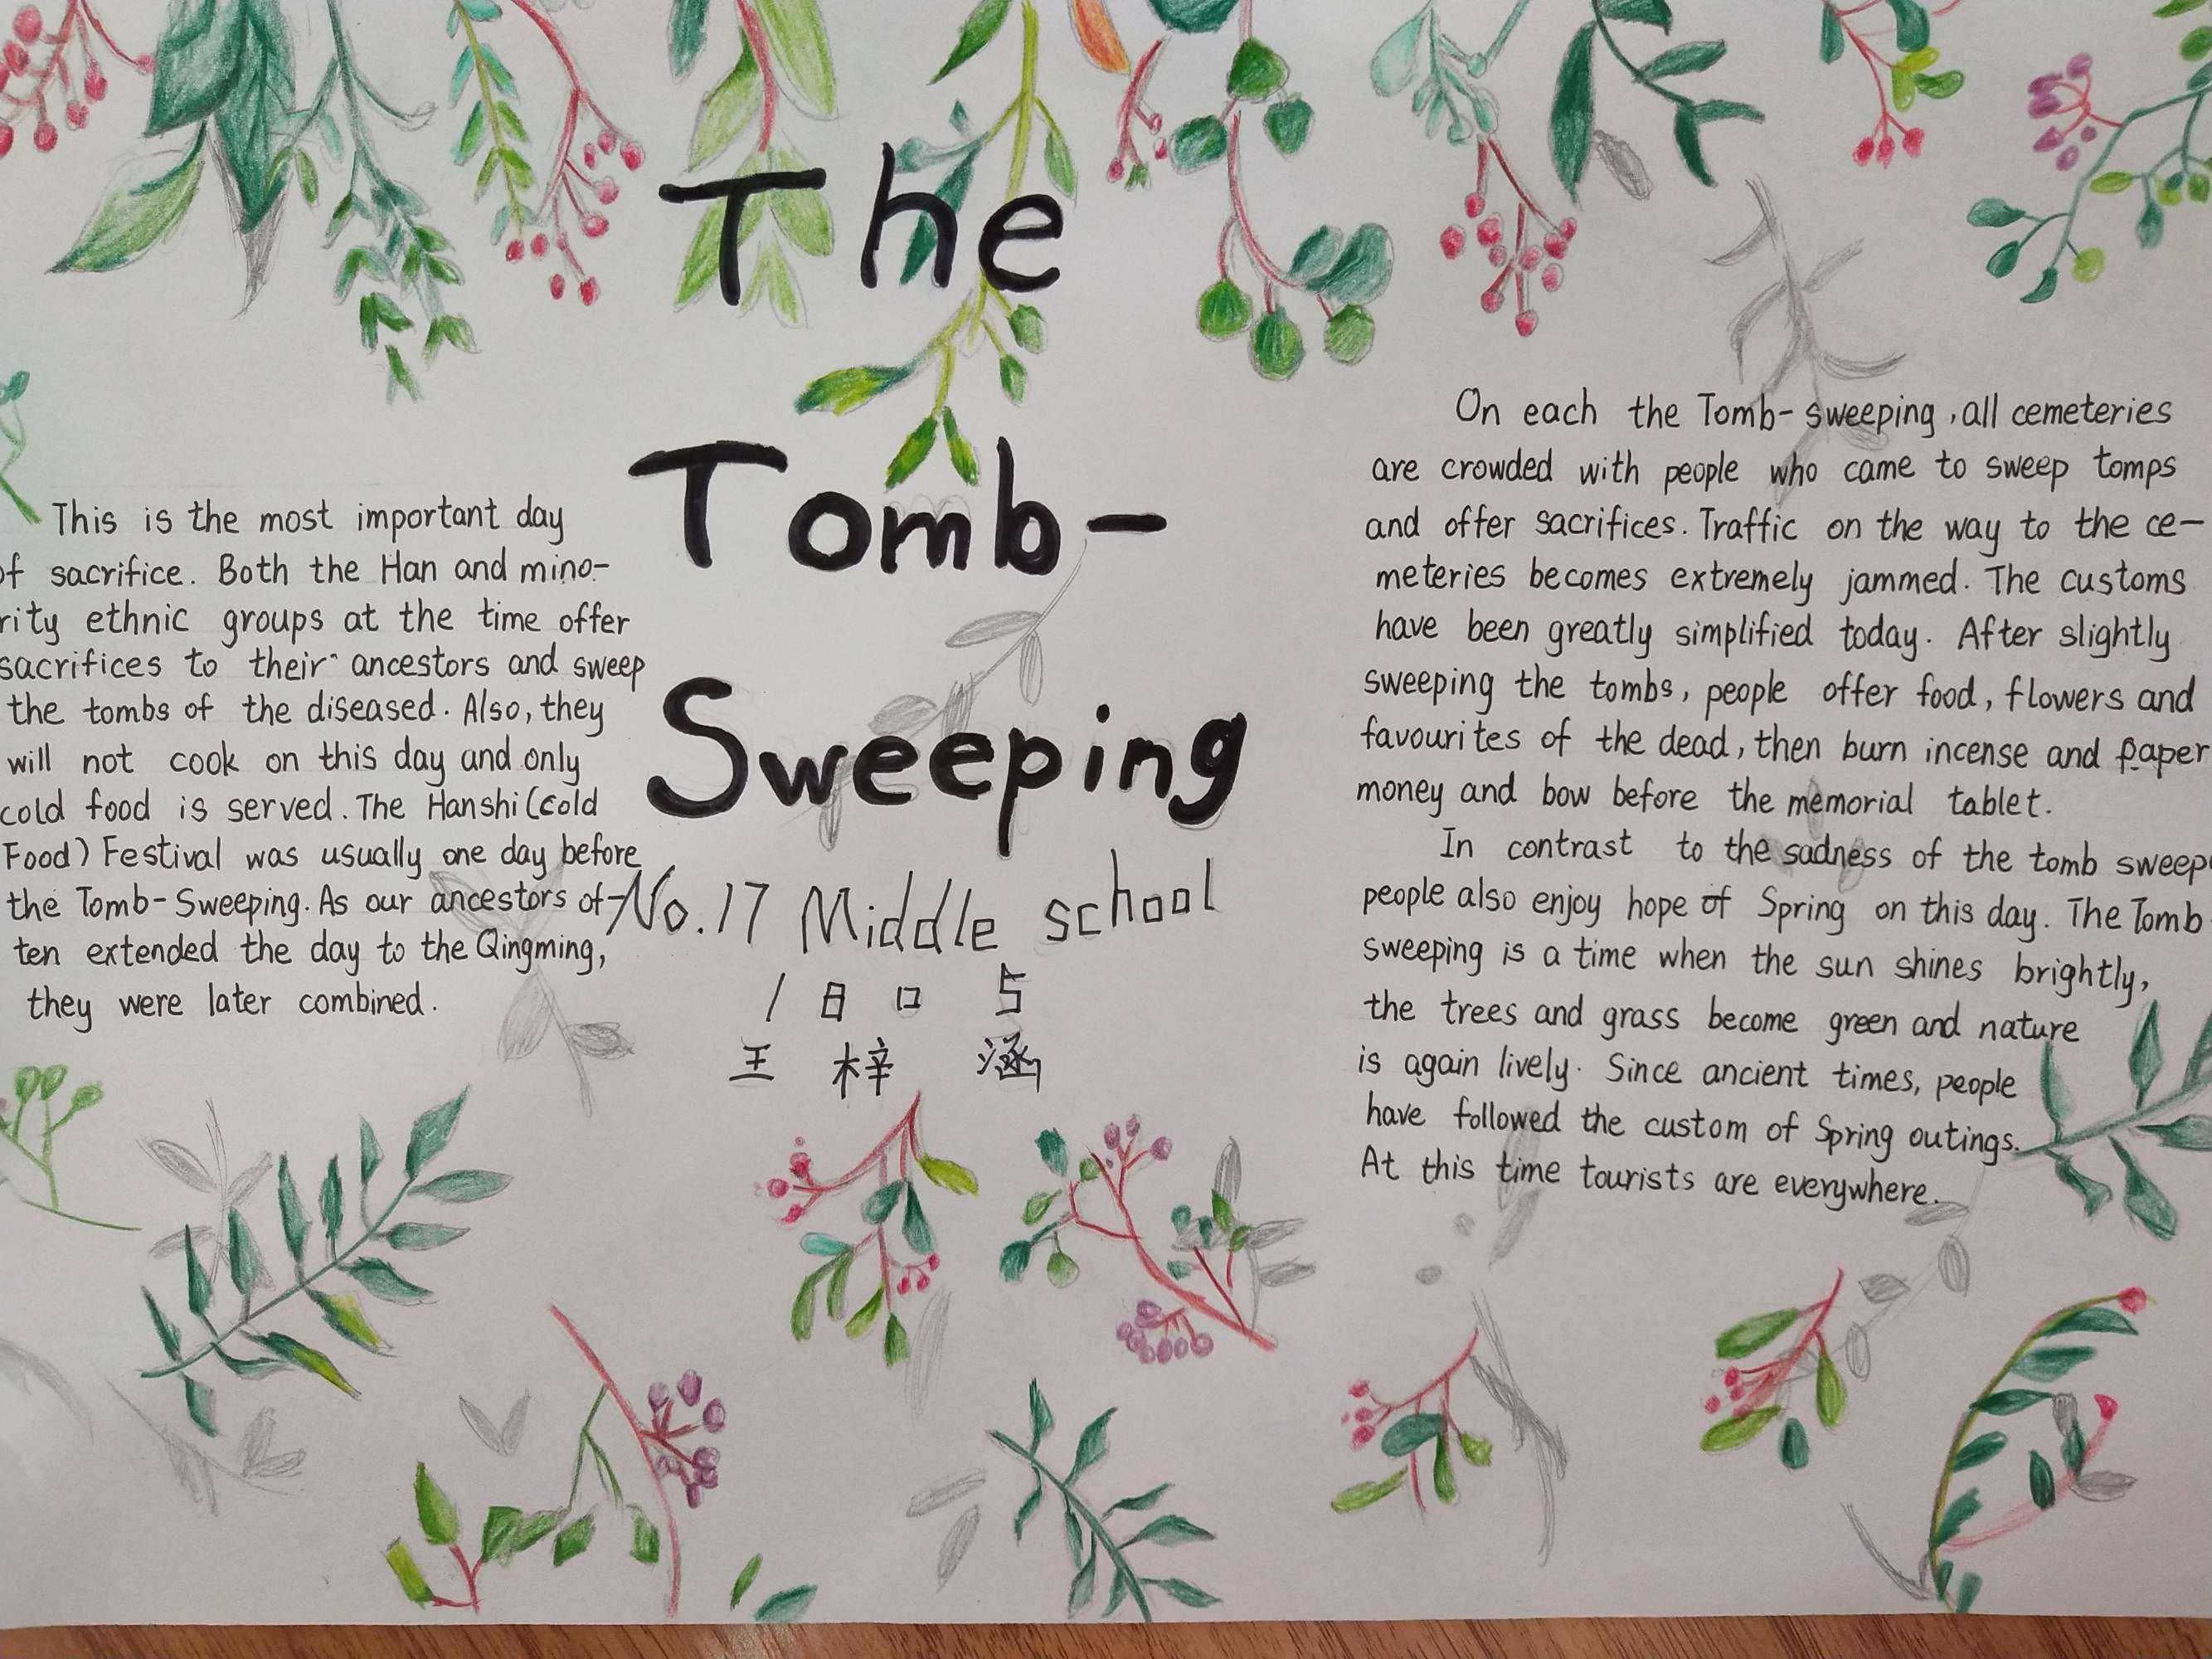 The
Tomb-
Sweeping
No.17 Middle school
王 梓 涵
This is the most important day
of sacrifice. Both the Han and mino-
rity ethnic groups at the time offer
sacrifices to their ancestors and sweep
the tombs of the diseased. Also, they
will not cook on this day and only
cold food is served. The Hanshi (Cold
Food) Festival was usually one day before
the Tomb-Sweeping. As our ancestors of-
ten extended the day to the Qingming,
they were later combined.
On each the Tomb-sweeping, all cemeteries
are crowded with people who came to sweep tomps
and offer sacrifices. Traffic on the way to the ce-
meteries becomes extremely jammed. The customs
have been greatly simplified today. After slightly
sweeping the tombs, people offer food, flowers and
favourites of the dead, then burn incense and paper
money and bow before the memorial tablet.
In contrast to the sadness of the tomb sweep
people also enjoy hope of Spring on this day. The Tomb
sweeping is a time when the sun shines brightly,
the trees and grass become green and nature
is again lively. Since ancient times, people
have followed the custom of Spring outings.
At this time tourists are everywhere.